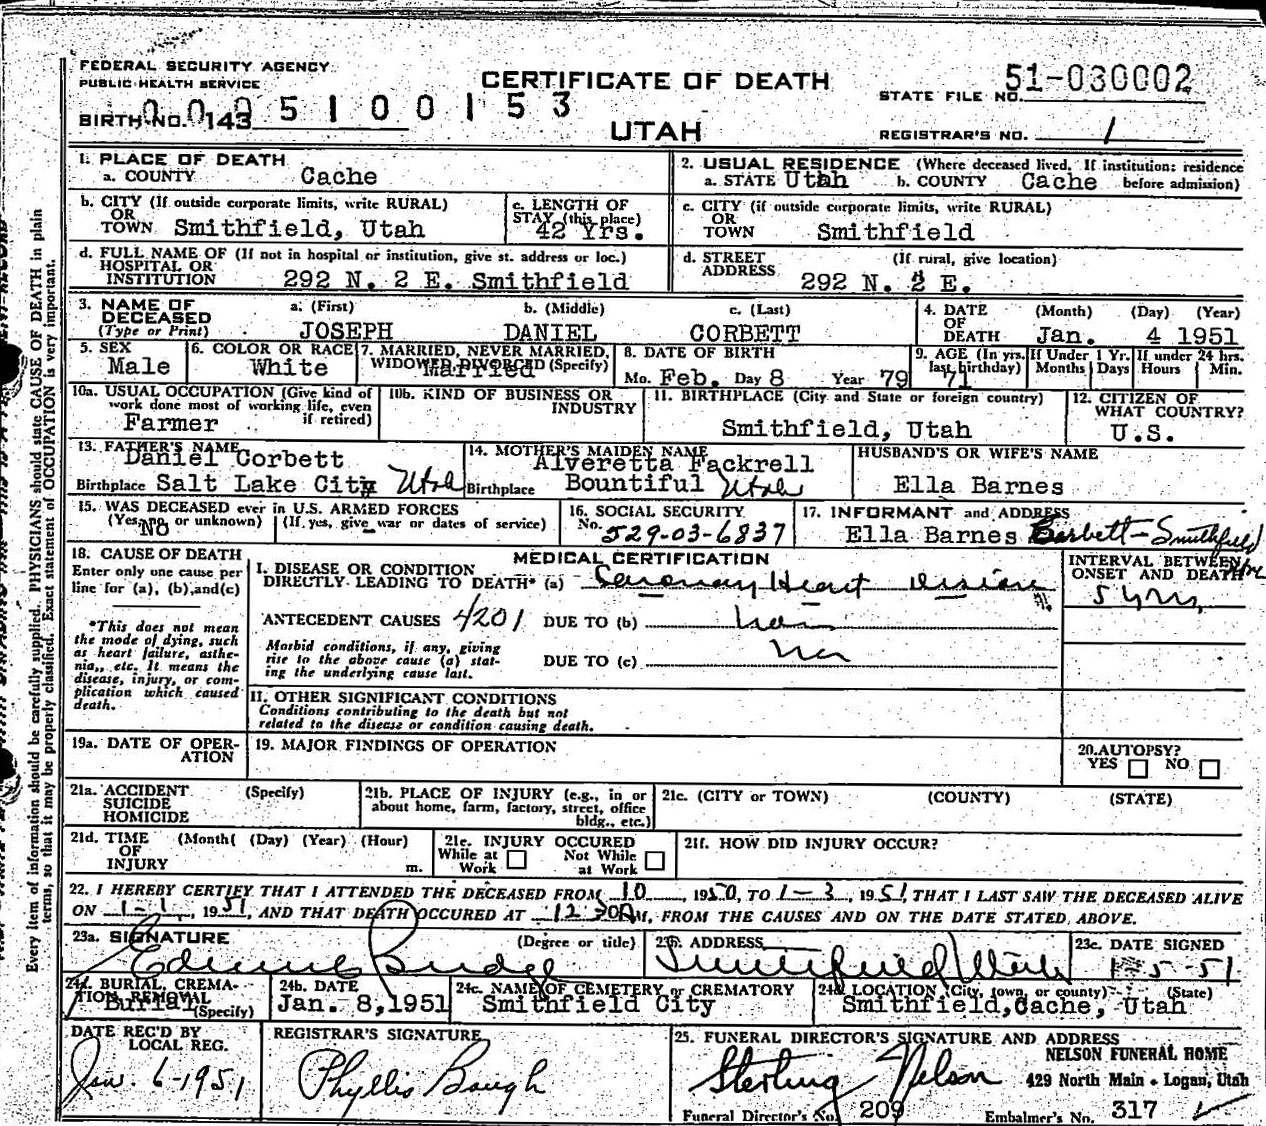 FEDERAL SECURITY AGENCY
PUBLIC HEALTH SERVICE
CERTIFICATE OF DEATH
UTAH
STATE FILE NO. 51-030002
BIRTH NO. 0143 0095100153
REGISTRAR'S NO. 1
1. PLACE OF DEATH
a. COUNTY Cache
2. USUAL RESIDENCE (Where deceased lived. If institution: residence before admission)
a. STATE Utah b. COUNTY Cache
b. CITY (If outside corporate limits, write RURAL)
OR
TOWN Smithfield, Utah
c. LENGTH OF
STAY (this place)
42 Yrs.
c. CITY (if outside corporate limits, write RURAL)
OR
TOWN Smithfield
d. FULL NAME OF (If not in hospital or institution, give st. address or loc.)
HOSPITAL OR
INSTITUTION 292 N. 2 E. Smithfield
d. STREET (If rural, give location)
ADDRESS 292 N. 2 E.
3. NAME OF DECEASED
(Type or Print)
a. (First) b. (Middle) c. (Last)
JOSEPH DANIEL CORBETT
4. DATE OF DEATH (Month) (Day) (Year)
Jan. 4 1951
5. SEX
Male
6. COLOR OR RACE
White
7. MARRIED, NEVER MARRIED,
WIDOWED DIVORCED (Specify)
Married
8. DATE OF BIRTH
Mo. Feb. Day 8 Year 79
9. AGE (In yrs. last birthday)
71
If Under 1 Yr.
Months Days
If under 24 hrs.
Hours Min.
10a. USUAL OCCUPATION (Give kind of
work done most of working life, even
if retired)
Farmer
10b. KIND OF BUSINESS OR
INDUSTRY
11. BIRTHPLACE (City and State or foreign country)
Smithfield, Utah
12. CITIZEN OF
WHAT COUNTRY?
U.S.
13. FATHER'S NAME
Daniel Corbett
Birthplace Salt Lake City Utah
14. MOTHER'S MAIDEN NAME
Alveretta Fackrell
Birthplace Bountiful Utah
HUSBAND'S OR WIFE'S NAME
Ella Barnes
15. WAS DECEASED ever in U.S. ARMED FORCES
(Yes, No or unknown) (If yes, give war or dates of service)
No
16. SOCIAL SECURITY
No. 529-03-6837
17. INFORMANT and ADDRESS
Ella Barnes Corbett-Smithfield
18. CAUSE OF DEATH
Enter only one cause per
line for (a), (b), and (c)
*This does not mean
the mode of dying, such
as heart failure, asthe-
nia,, etc. It means the
disease, injury, or com-
plication which caused
death.
MEDICAL CERTIFICATION
I. DISEASE OR CONDITION
DIRECTLY LEADING TO DEATH* (a) Coronary Heart disease
ANTECEDENT CAUSES 4201 DUE TO (b)
Morbid conditions, if any, giving
rise to the above cause (a) stat-
ing the underlying cause last.
DUE TO (c)
INTERVAL BETWEEN
ONSET AND DEATH
5 yrs,
II. OTHER SIGNIFICANT CONDITIONS
Conditions contributing to the death but not
related to the disease or condition causing death.
19a. DATE OF OPER-
ATION
19. MAJOR FINDINGS OF OPERATION
20. AUTOPSY?
YES NO
21a. ACCIDENT (Specify)
SUICIDE
HOMICIDE
21b. PLACE OF INJURY (e.g., in or
about home, farm, factory, street, office
bldg., etc.)
21c. (CITY or TOWN) (COUNTY) (STATE)
21d. TIME (Month( (Day) (Year) (Hour)
OF
INJURY m.
21e. INJURY OCCURED
While at Work Not While at Work
21f. HOW DID INJURY OCCUR?
22. I HEREBY CERTIFY THAT I ATTENDED THE DECEASED FROM 10, 1950, TO 1-3, 1951, THAT I LAST SAW THE DECEASED ALIVE
ON 1-1, 1951, AND THAT DEATH OCCURED AT 12:30A M, FROM THE CAUSES AND ON THE DATE STATED ABOVE.
23a. SIGNATURE (Degree or title)
Budge
23b. ADDRESS
Smithfield Utah
23c. DATE SIGNED
1-5-51
24a. BURIAL, CREMA-
TION, REMOVAL
(Specify)
Burial
24b. DATE
Jan. 8, 1951
24c. NAME OF CEMETERY or CREMATORY
Smithfield City
24d. LOCATION (City, town, or county) (State)
Smithfield, Cache, Utah
DATE REC'D BY
LOCAL REG.
Jan. 6-1951
REGISTRAR'S SIGNATURE
Phyllis Baugh
25. FUNERAL DIRECTOR'S SIGNATURE AND ADDRESS
Sterling Nelson
NELSON FUNERAL HOME
429 North Main • Logan, Utah
Funeral Director's No. 209 Embalmer's No. 317
Every item of information should be carefully supplied. PHYSICIANS should state CAUSE OF DEATH in plain
terms, so that it may be properly classified. Exact statement of OCCUPATION is very important.